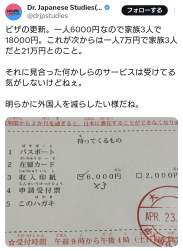 Dr. Japanese Studies(...
@drjpstudies
フォローする
ビザの更新。一人6000円なので家族3人で
18000円。これが次からは一人7万円で家族3人
だと21万円とのこと。
それに見合った何かしらのサービスは受けてる
気がしないけどねぇ。
明らかに外国人を減らしたい様だね。
持ってくるもの
1 パスポート
2 在留カード
3 収入印紙 ☑6,000円 □2,000円
×3
4 申請受付票
5 このハガキ
APR. 23.
☆受付時間 午前9時から午後4時